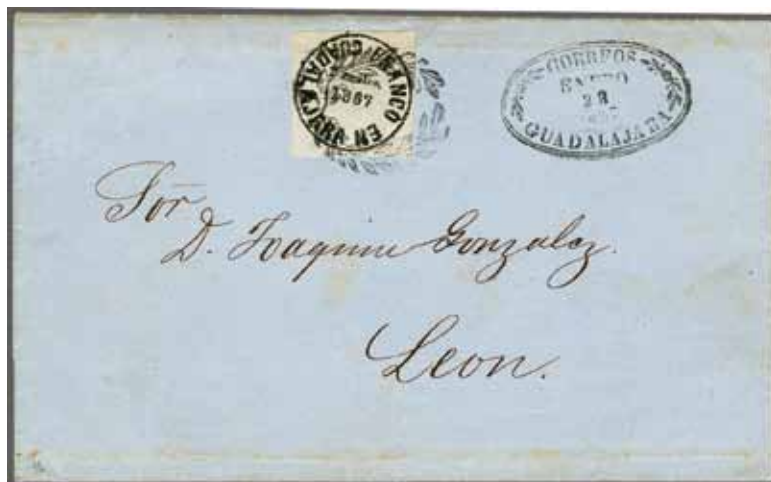 FRANCO EN GUADALAJARA
1867
CORREOS
ENERO
28
GUADALAJARA
Sōr
D. Joaquin Gonzalez.
Leon.